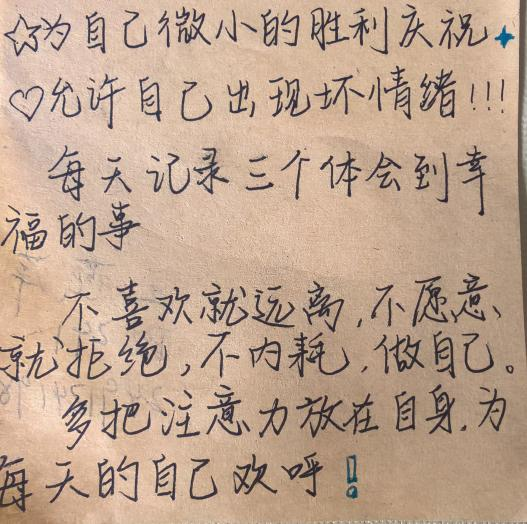 ☆为自己微小的胜利庆祝✦
♡允许自己出现坏情绪!!!
每天记录三个体会到幸
福的事
不喜欢就远离,不愿意、
就拒绝,不内耗,做自己。
多把注意力放在自身,为
每天的自己欢呼!